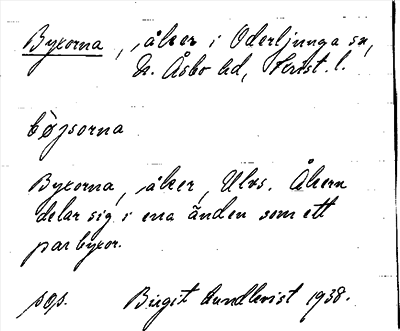 Byxorna, åker i Oderljunga sn,
N. Åsbo hd, Krist. l.
bòysorna
Byxorna, åker, Ulvs. Åkern
delar sig i ena änden som ett
par byxor.
pgs. Birgit Lundkvist 1938.